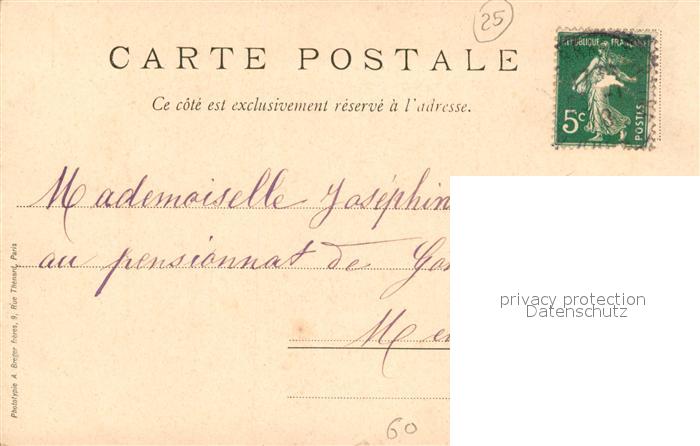 25
CARTE POSTALE
RÉPUBLIQUE FRANÇAISE
5c
POSTES
Ce côté est exclusivement réservé à l'adresse.
Mademoiselle Joséphin
au pensionnat de
privacy protection
Datenschutz
Phototypie A. Breger frères, 9, Rue Thénard, Paris
60